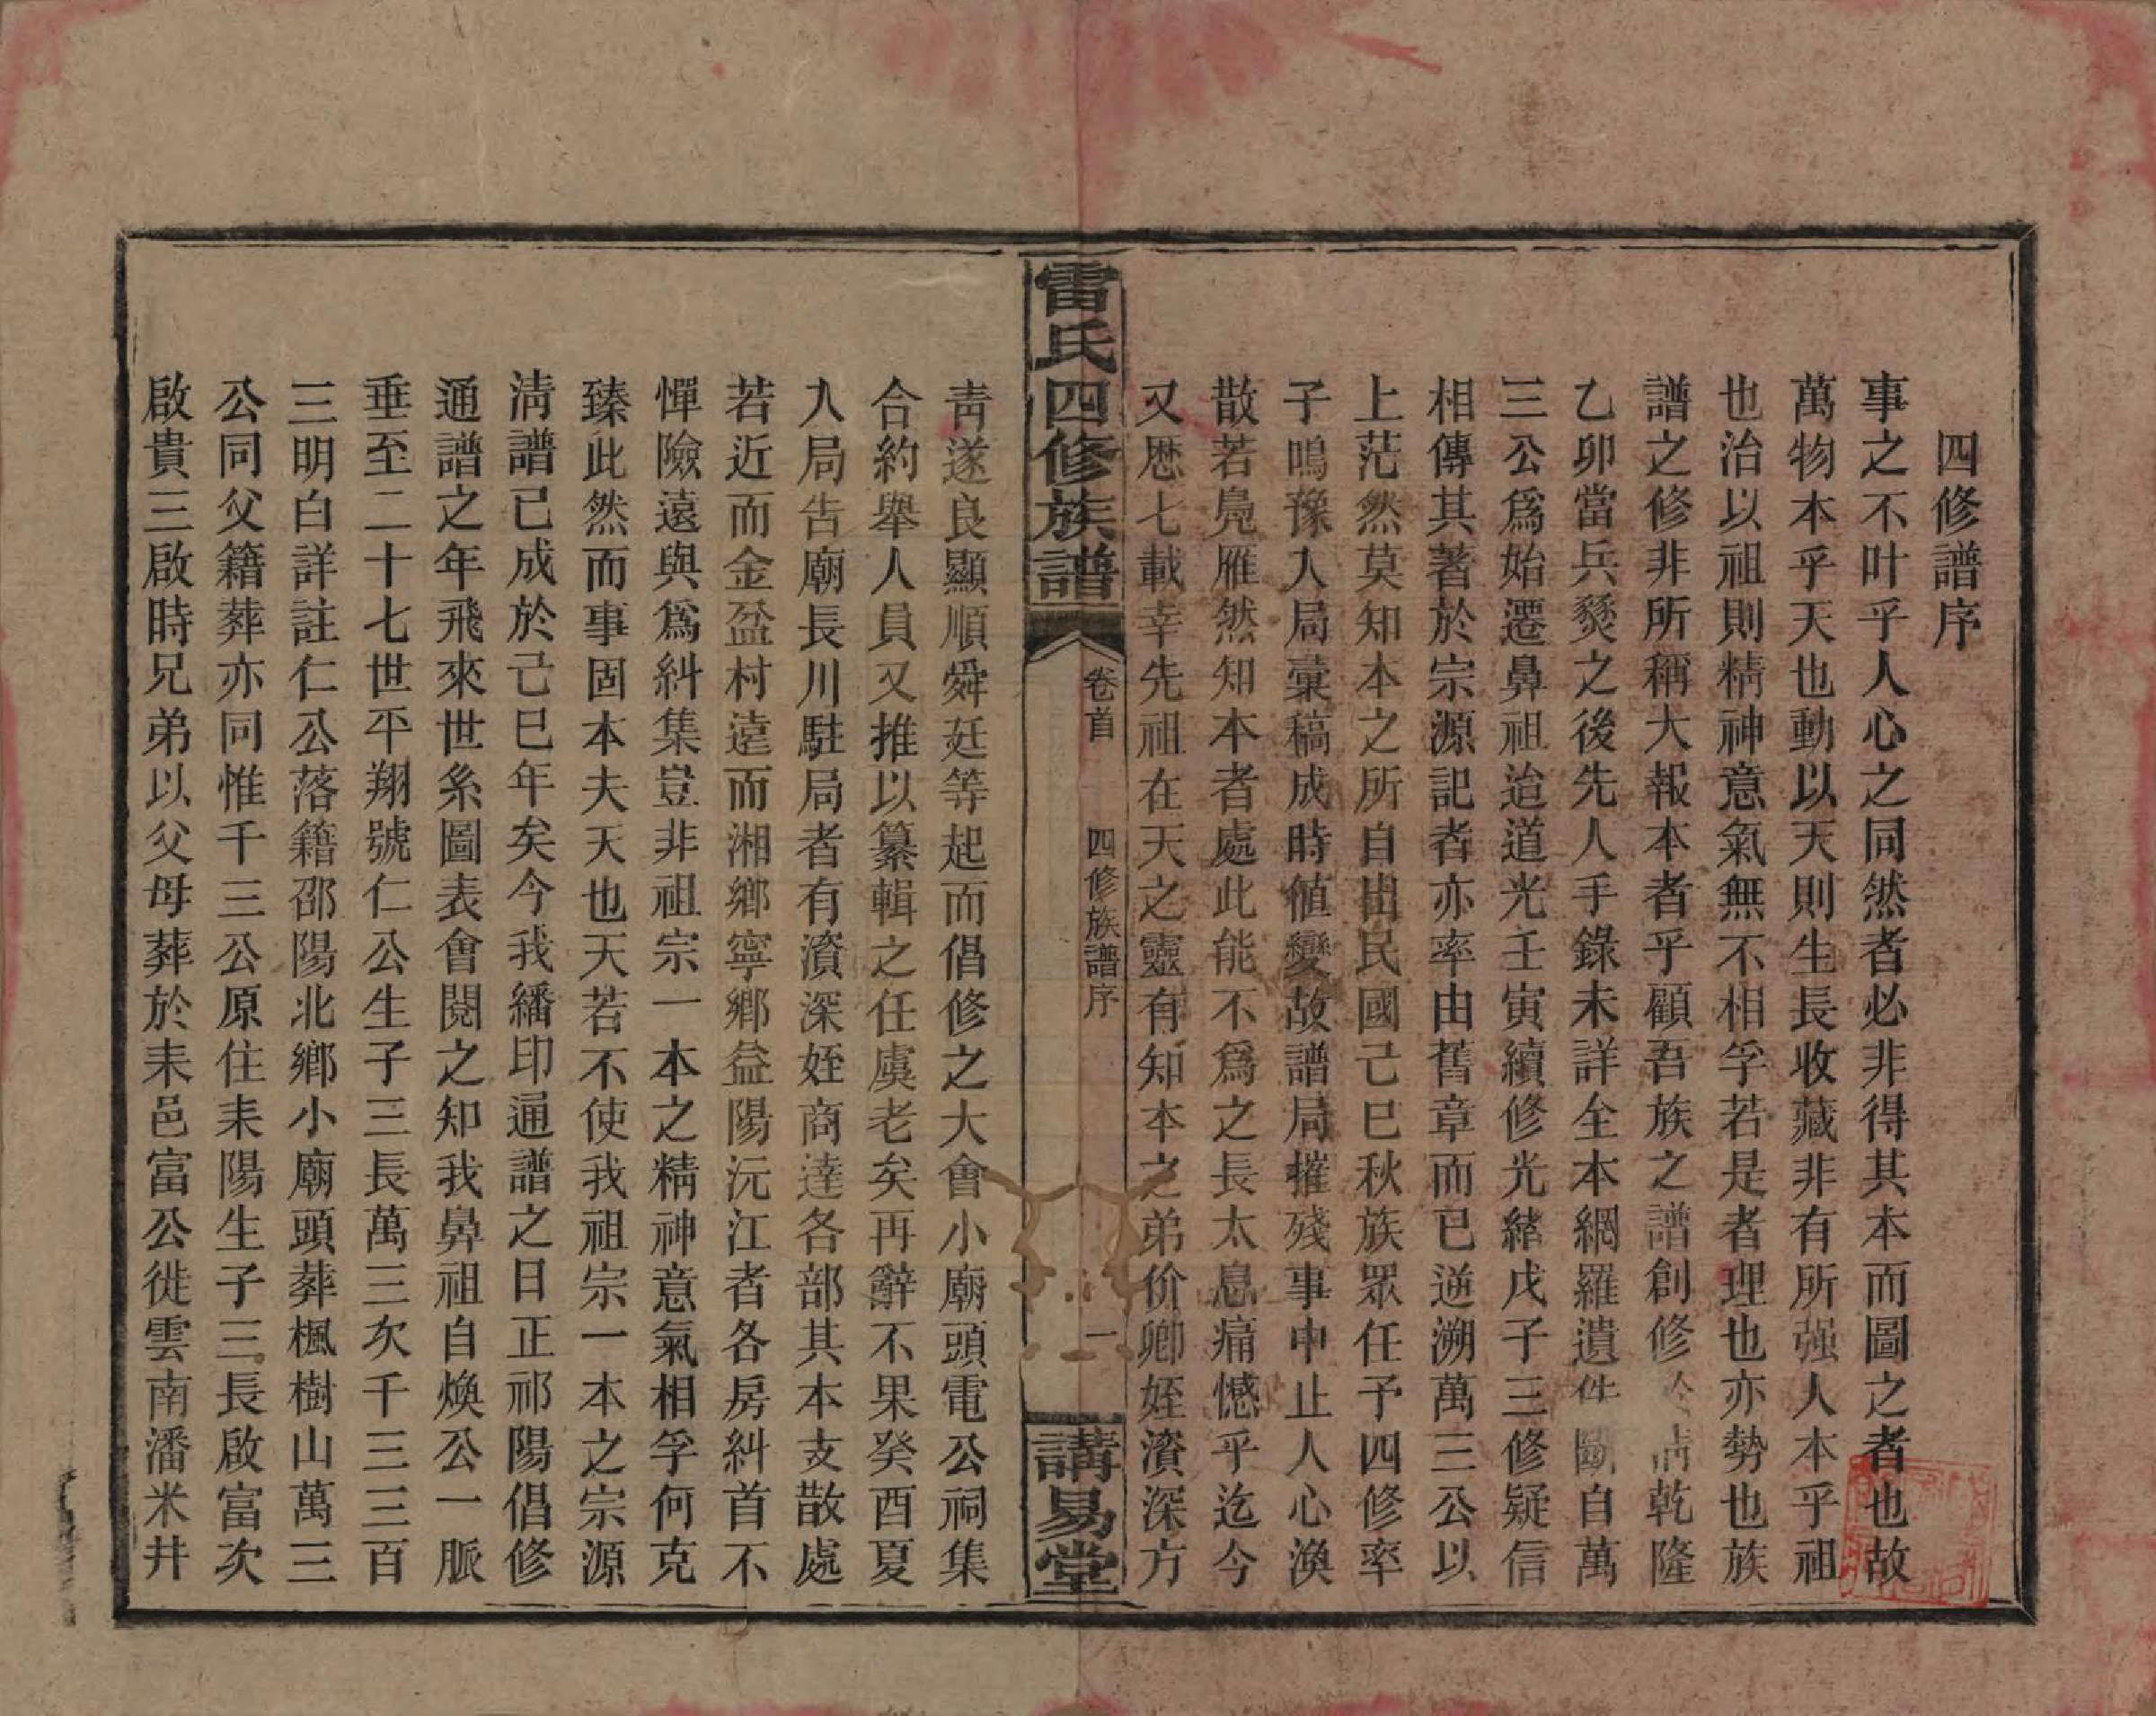 四修譜序
事之不叶乎人心之同然者必非得其本而圖之者也故
萬物本乎天也動以天則生長收藏非有所强人本乎祖
也治以祖則精神意氣無不相孚若是者理也亦勢也族
譜之修非所稱大報本者乎顧吾族之譜創修於前乾隆
乙卯當兵燹之後先人手錄未詳全本網羅遺佚斷自萬
三公爲始遷鼻祖迨道光壬寅續修光緒戊子三修疑信
相傳其著於宗源記者亦率由舊章而已逆溯萬三公以
上茫然莫知本之所自出民國己巳秋族眾任予四修率
子鳴豫入局彙稿成時値變故譜局摧殘事中止人心渙
散若鳧雁然知本者處此能不爲之長太息痛憾乎迄今
又歷七載幸先祖在天之靈有知本之弟价卿姪濱深方
雷氏四修族譜 卷首 四修族譜序 一 講易堂
靑遂良顯順舜廷等起而倡修之大會小廟頭電公祠集
合約舉人員又推以纂輯之任虞老矣再辭不果癸酉夏
入局告廟長川駐局者有濱深姪商達各部其本支散處
若近而金盆村遠而湘鄉寧鄉益陽沅江者各房糾首不
憚險遠與爲糾集豈非祖宗一本之精神意氣相孚何克
臻此然而事固本夫天也天若不使我祖宗一本之宗源
淸譜已成於己巳年矣今我繙印通譜之日正祁陽倡修
通譜之年飛來世系圖表會閱之知我鼻祖自煥公一脈
垂至二十七世平翔號仁公生子三長萬三次千三三百
三明白詳註仁公落籍邵陽北鄉小廟頭葬楓樹山萬三
公同父籍葬亦同惟千三公原住耒陽生子三長啟富次
啟貴三啟時兄弟以父母葬於耒邑富公徙雲南潘米井